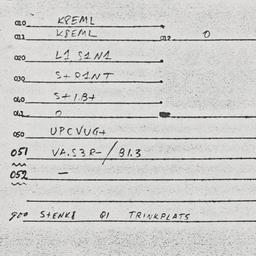 010 KREML
011 KREML 012 0
020 L1 S1N1
030 S+R1NT
060 S+1.B+
061 0
050 UPCVUG+
051 VA.S3R-/91.3
052 —
900 S+ENKE Q1 TRINKPLATS